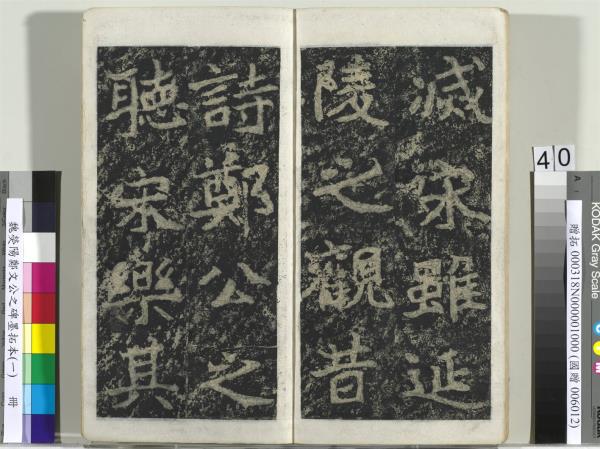 滅宋雖延
陵之觀昔
詩鄭公之
聽宋樂其
魏滎陽鄭文公之碑墨拓本(一) 冊
40
贈拓 000318N000001000 (國贈 006012)
KODAK Gray Scale
A
M